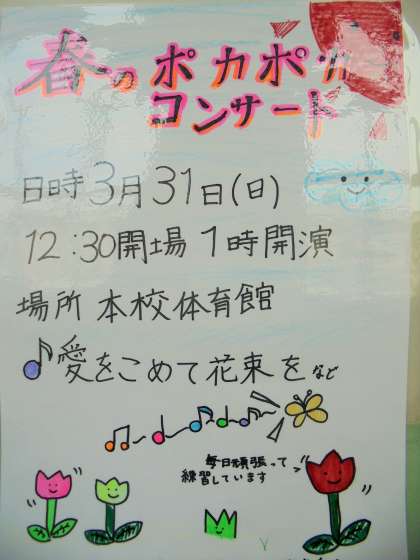 春のポカポカ
コンサート
日時3月31日(日)
12:30開場 1時開演
場所 本校体育館
愛をこめて花束を など
毎日頑張って
練習しています